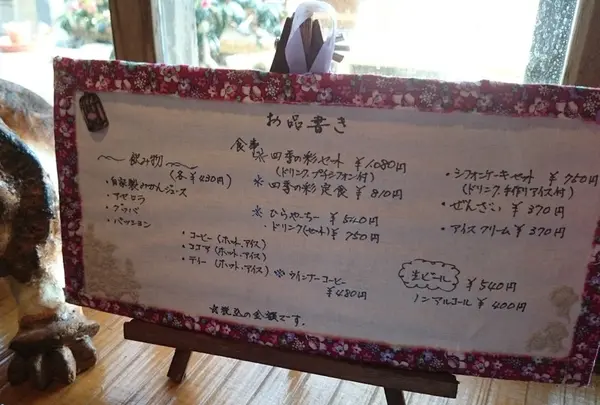 お品書き
〜 飲み物 〜
(各 ¥430円)
・自家製みかんジュース
・アセロラ
・グァバ
・パッション
・コーヒー (ホット、アイス)
・ココア (ホット、アイス)
・ティー (ホット、アイス)
※ ウインナーコーヒー
¥480円
食事
※ 四季の彩セット ¥1080円
(ドリンク、プチシフォン付)
※ 四季の彩定食 ¥810円
※ ひらやーちー ¥540円
・ドリンク(セット) ¥750円
・シフォンケーキセット ¥750円
(ドリンク、手作りアイス付)
・ぜんざい ¥370円
・アイスクリーム ¥370円
生ビール ¥540円
ノンアルコール ¥400円
☆税込の金額です.